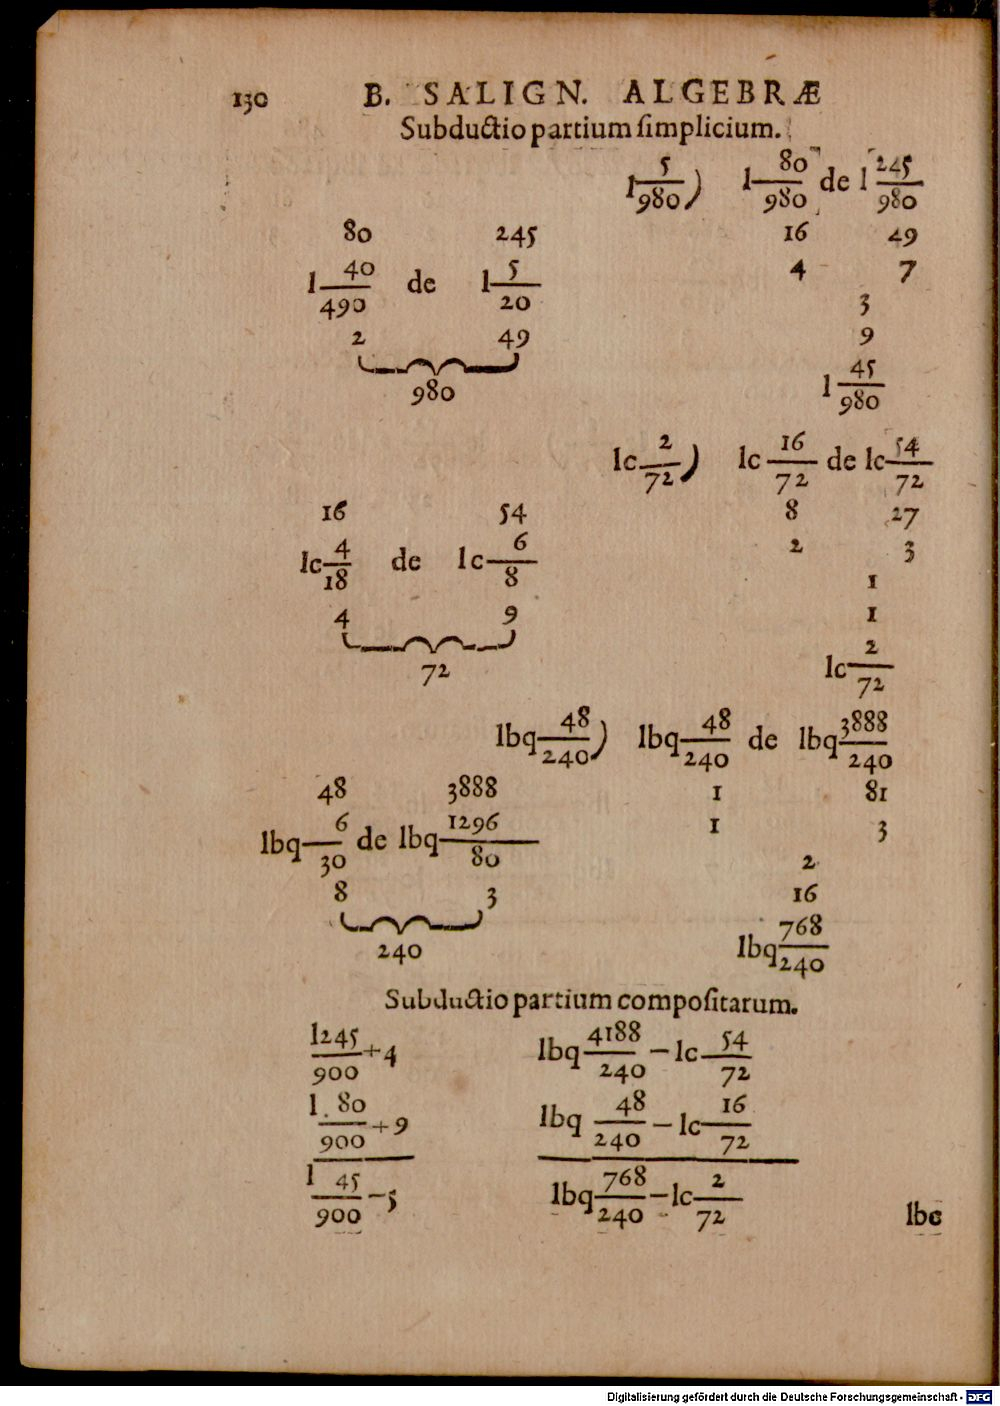 130 B. SALIGN. ALGEBRÆ
Subductio partium ſimplicium.
l 5/980) l 80/980 de l 245/980
80 245 16 49
l 40/490 de l 5/20 4 7
3
2 49 9
980 l 45/980
lc 2/72) lc 16/72 de lc 54/72
16 54 8 27
lc 4/18 de lc 6/8 2 3
1
4 9 1
72 lc 2/72
lbq 48/240) lbq 48/240 de lbq 3888/240
48 3888 1 81
lbq 6/30 de lbq 1296/80 1 3
2
8 3 16
240 lbq 768/240
Subductio partium compoſitarum.
l245/900 + 4 lbq 4188/240 – lc 54/72
l. 80/900 + 9 lbq 48/240 – lc 16/72
l 45/900 – 5 lbq 768/240 – lc 2/72
lbc
Digitalisierung gefördert durch die Deutsche Forschungsgemeinschaft - DFG